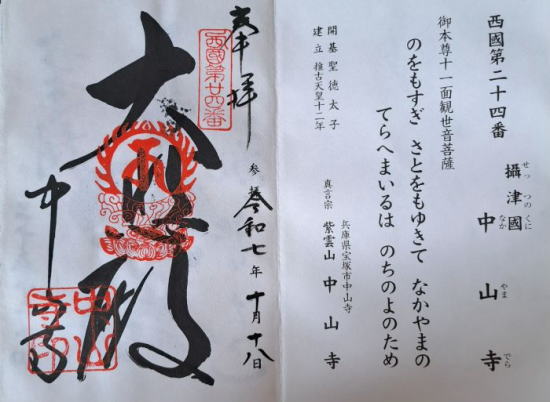 西國第二十四番
せっ つの くに
攝津國
なか やま でら
中山寺
御本尊十一面観世音菩薩
のをもすぎ さとをもゆきて なかやまの
てらへまいるは のちのよのため
開基聖徳太子
建立推古天皇十二年
兵庫県宝塚市中山寺
真言宗 紫雲山 中山寺
奉拝
西國第廿四番
参拝 令和七年十月十八日
大悲殿
中山寺